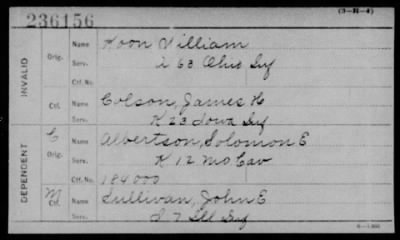 236156
(3-H-4)
INVALID
Orig.
Name Koon William
Serv. I 63 Ohio Inf
Ctf. No.
Ctf.
Name Colson, James H
Serv. K 23 Iowa Inf
DEPENDENT
C
Orig.
Name Albertson, Solomon E
Serv. K 12 Mo Cav
Ctf. No. 184000
M
Ctf.
Name Sullivan, John E
Serv. I 7 Ill Inf